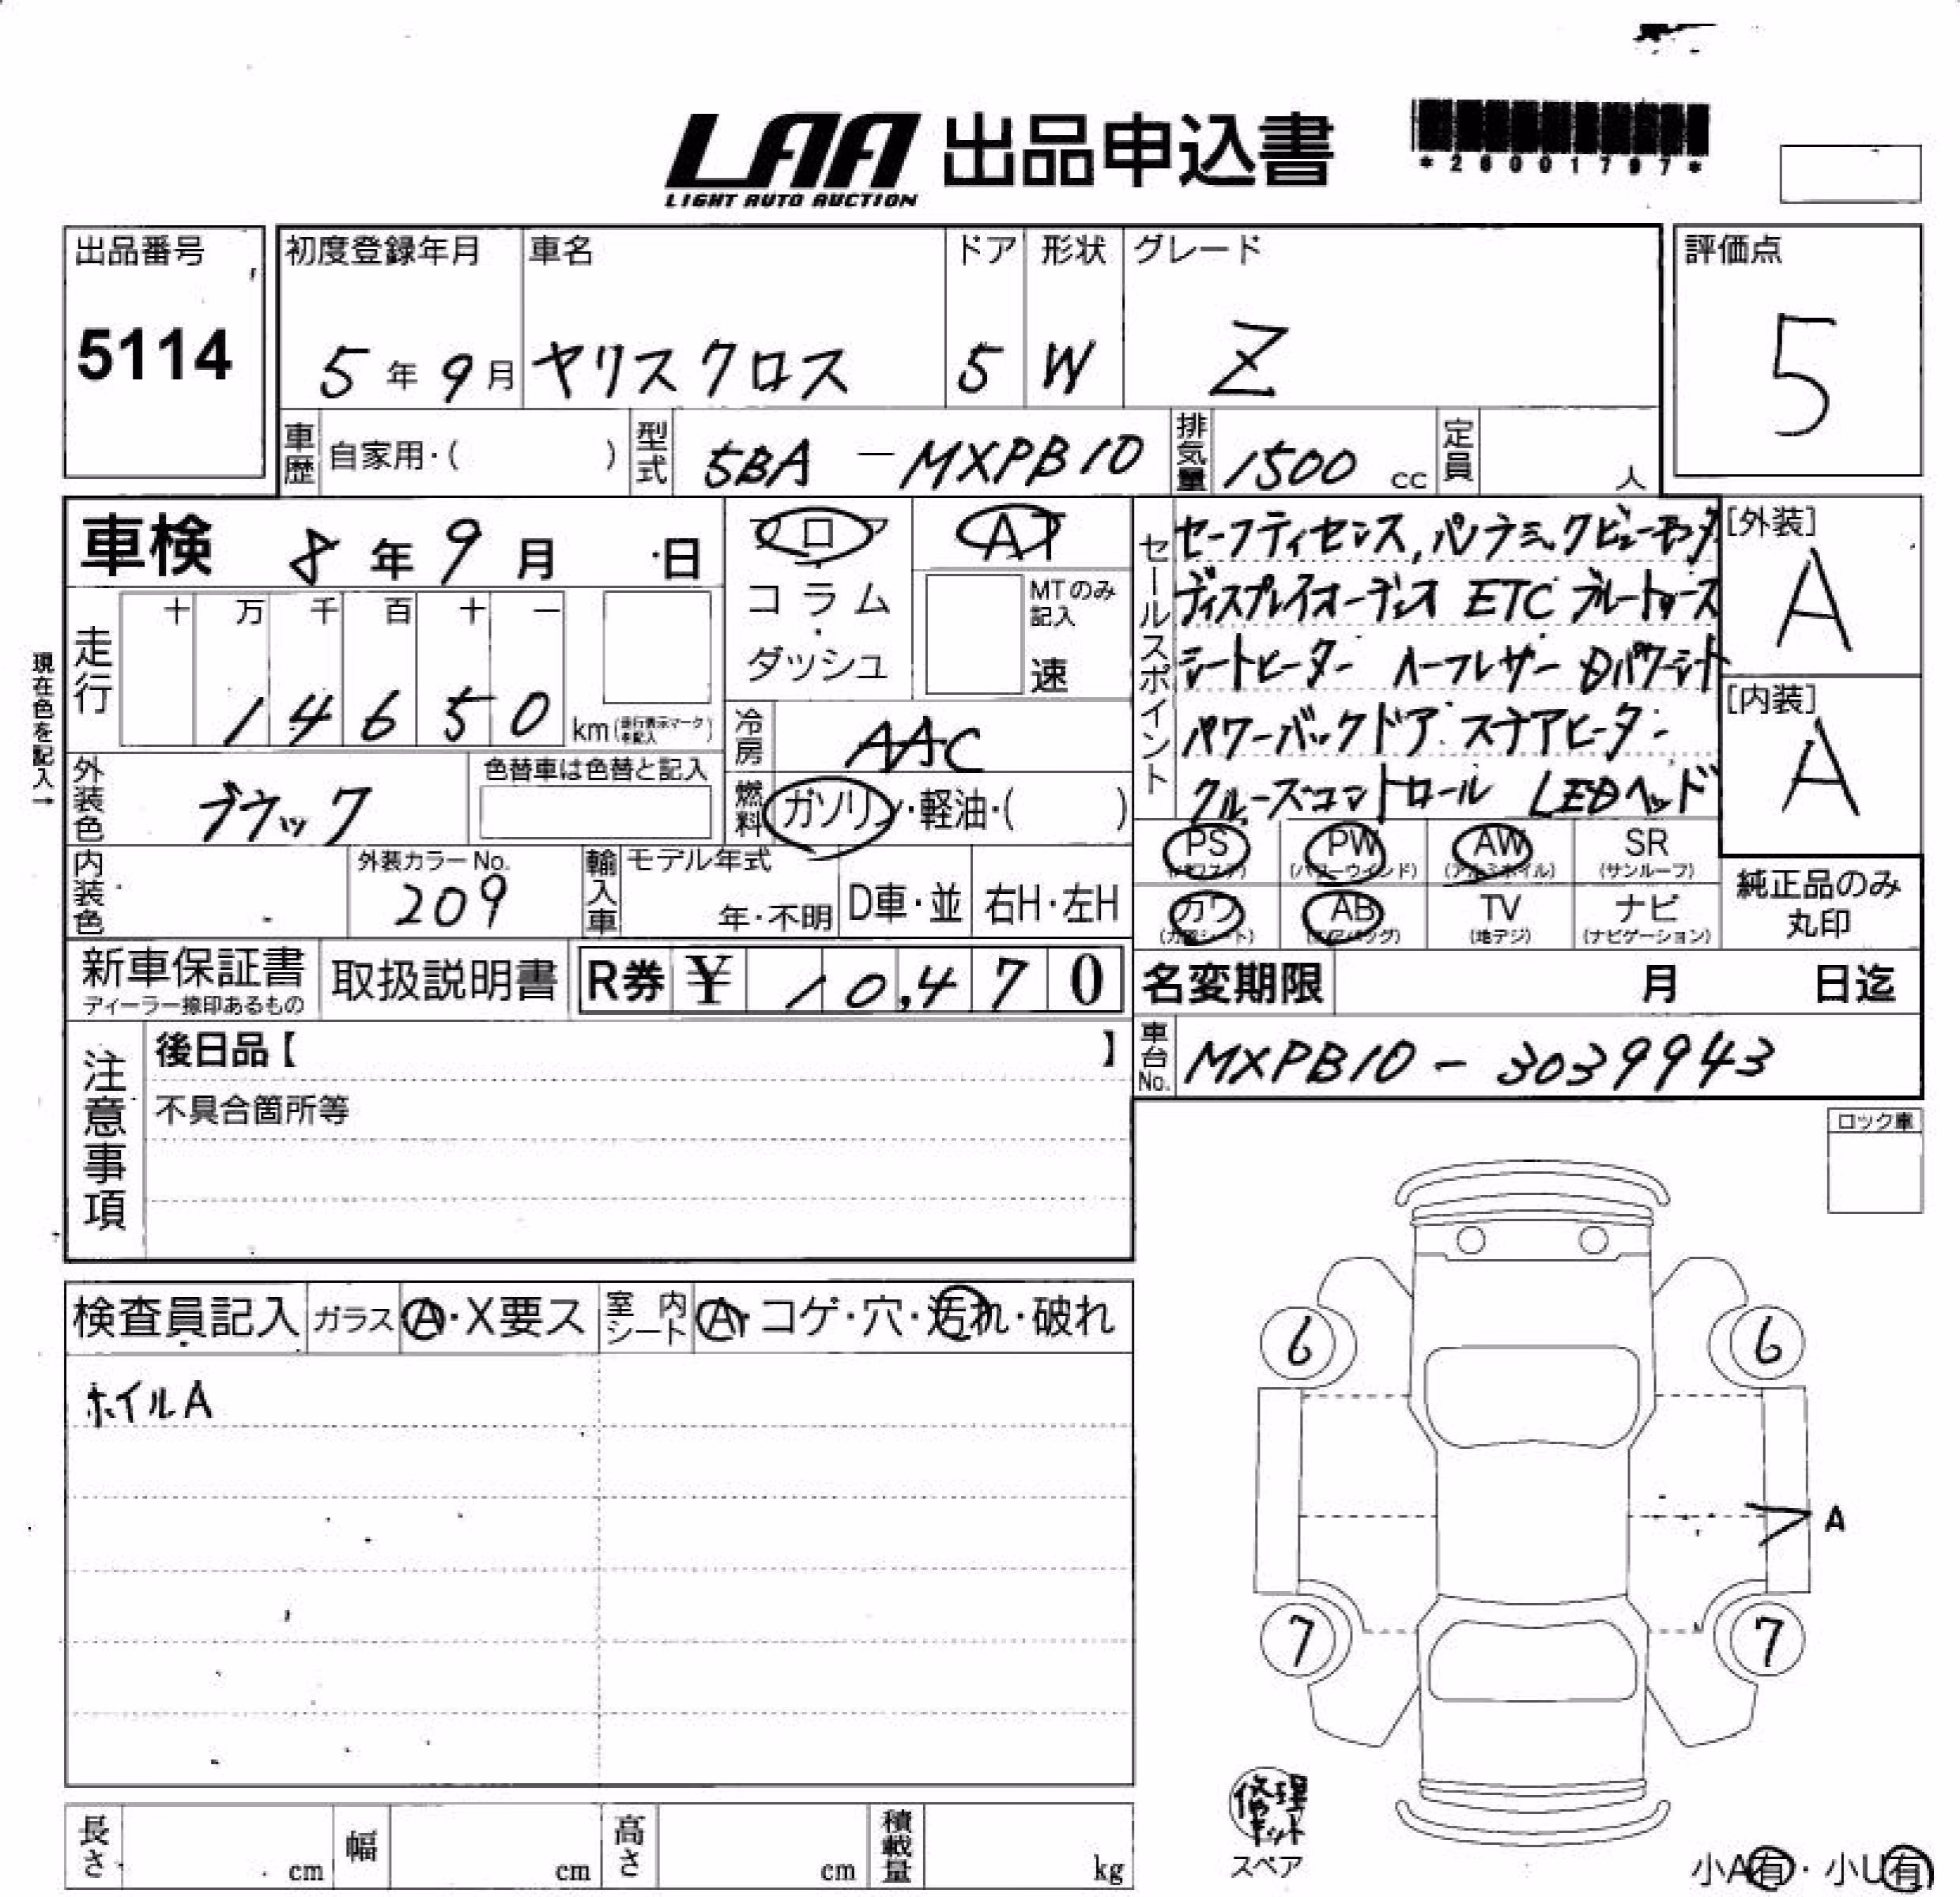 LAA 出品申込書
LIGHT AUTO AUCTION
*26001797*
出品番号
5114
初度登録年月
5年9月
車名
ヤリスクロス
ドア
5
形状
W
グレード
Z
評価点
5
車歴 自家用・( )
型式 5BA-MXPB10
排気量 1500 cc
定員 人
車検 8年9月 日
フロア
コラム
・
ダッシュ
AT
MTのみ
記入
速
現在色を記入→
走行
十 万 千 百 十 一
1 4 6 5 0 km
冷房 AAC
外装色 ブラック
色替車は色替と記入
燃料 ガソリン・軽油・( )
セールスポイント
セーフティセンス,パノラミックビューモニタ
ディスプレイオーディオ ETC ブルートゥース
シートヒーター ハーフレザー Dパワーシート
パワーバックドア ステアヒーター
クルーズコントロール LEDヘッド
[外装]
A
[内装]
A
内装色
外装カラーNo.
209
輸入車
モデル年式
年・不明
D車・並
右H・左H
PS PW AW SR
(パワステ) (パワーウインド) (アルミホイル) (サンルーフ)
カワ AB TV ナビ
(カワシート) (エアバッグ) (地デジ) (ナビゲーション)
純正品のみ
丸印
新車保証書
ディーラー捺印あるもの
取扱説明書
R券 ¥ 10,470
名変期限 月 日迄
車台No. MXPB10-3039943
注意事項
後日品【 】
不具合箇所等
ロック車
検査員記入 ガラス A・X要ス 室内シート A・コゲ・穴・汚れ・破れ
ホイルA
6 6
A
7 7
修理キット
スペア
長さ cm 幅 cm 高さ cm 積載量 kg
小A有・小U有